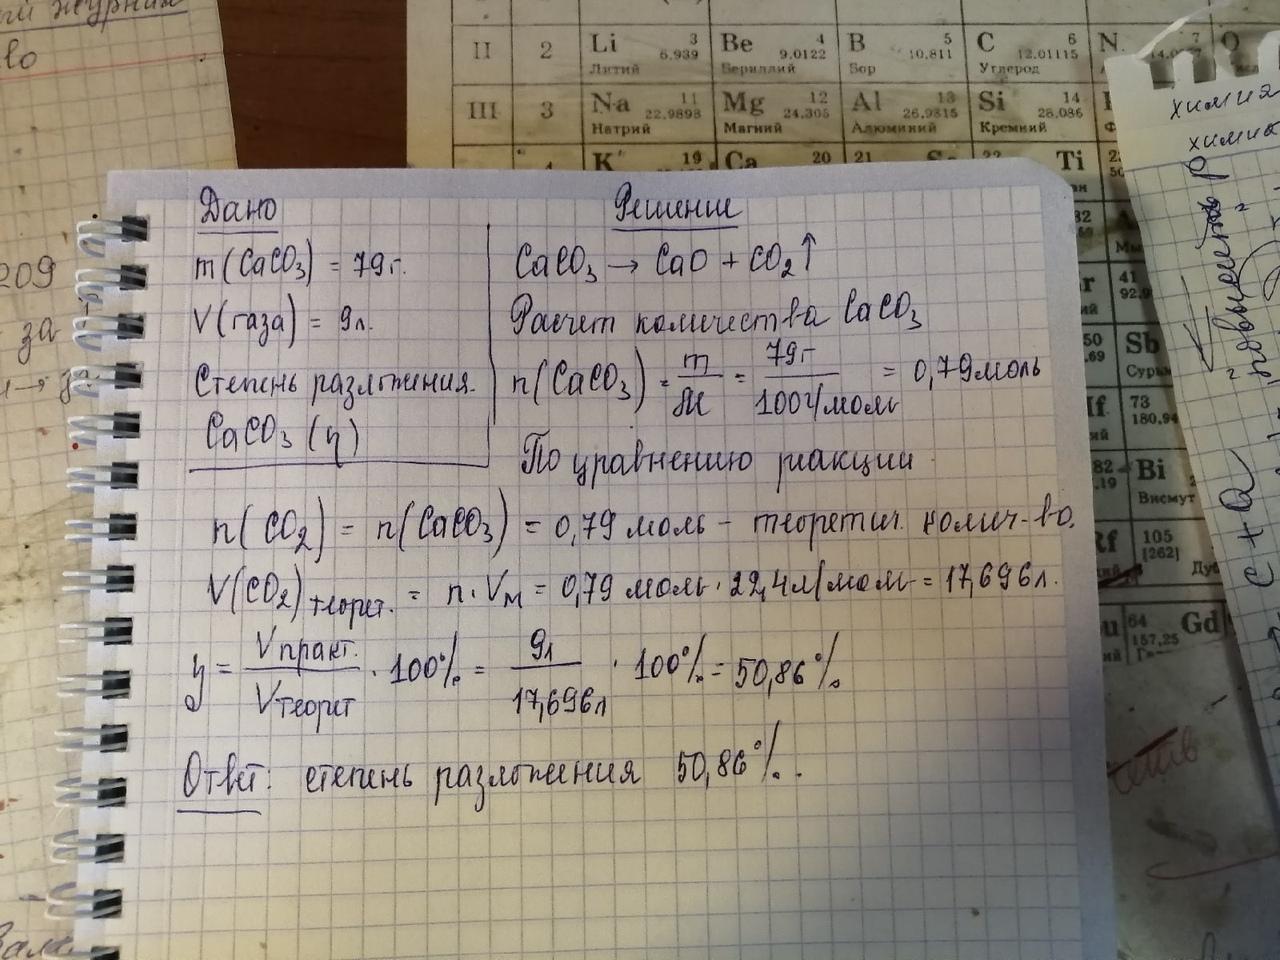 II 2 Li 3 6.939 Литий Be 4 9.0122 Бериллий B 5 10.811 Бор C 6 12.01115 Углерод N 7 O
III 3 Na 11 22.9898 Натрий Mg 12 24.305 Магний Al 13 26.9815 Алюминий Si 14 28.086 Кремний
K 19 Ca 20 21 Sc 22 Ti
химия
Дано
m(CaCO₃) = 79г.
V(газа) = 9л.
Степень разложения.
CaCO₃ (η)
Решение
CaCO₃ → CaO + CO₂↑
Расчет количества CaCO₃
n(CaCO₃) = m/M = 79г/100г/моль = 0,79моль
По уравнению реакции
n(CO₂) = n(CaCO₃) = 0,79 моль - теоретич. колич-во.
V(CO₂)теорет. = n·Vм = 0,79 моль · 22,4л/моль = 17,696л.
η = Vпракт./Vтеорет · 100% = 9л/17,696л · 100% = 50,86%
Ответ: степень разложения 50,86%.
209
за
41
50 Sb
73
180.94
Bi
Висмут
Rf 105
[262]
64 Gd
157,25
C + Q